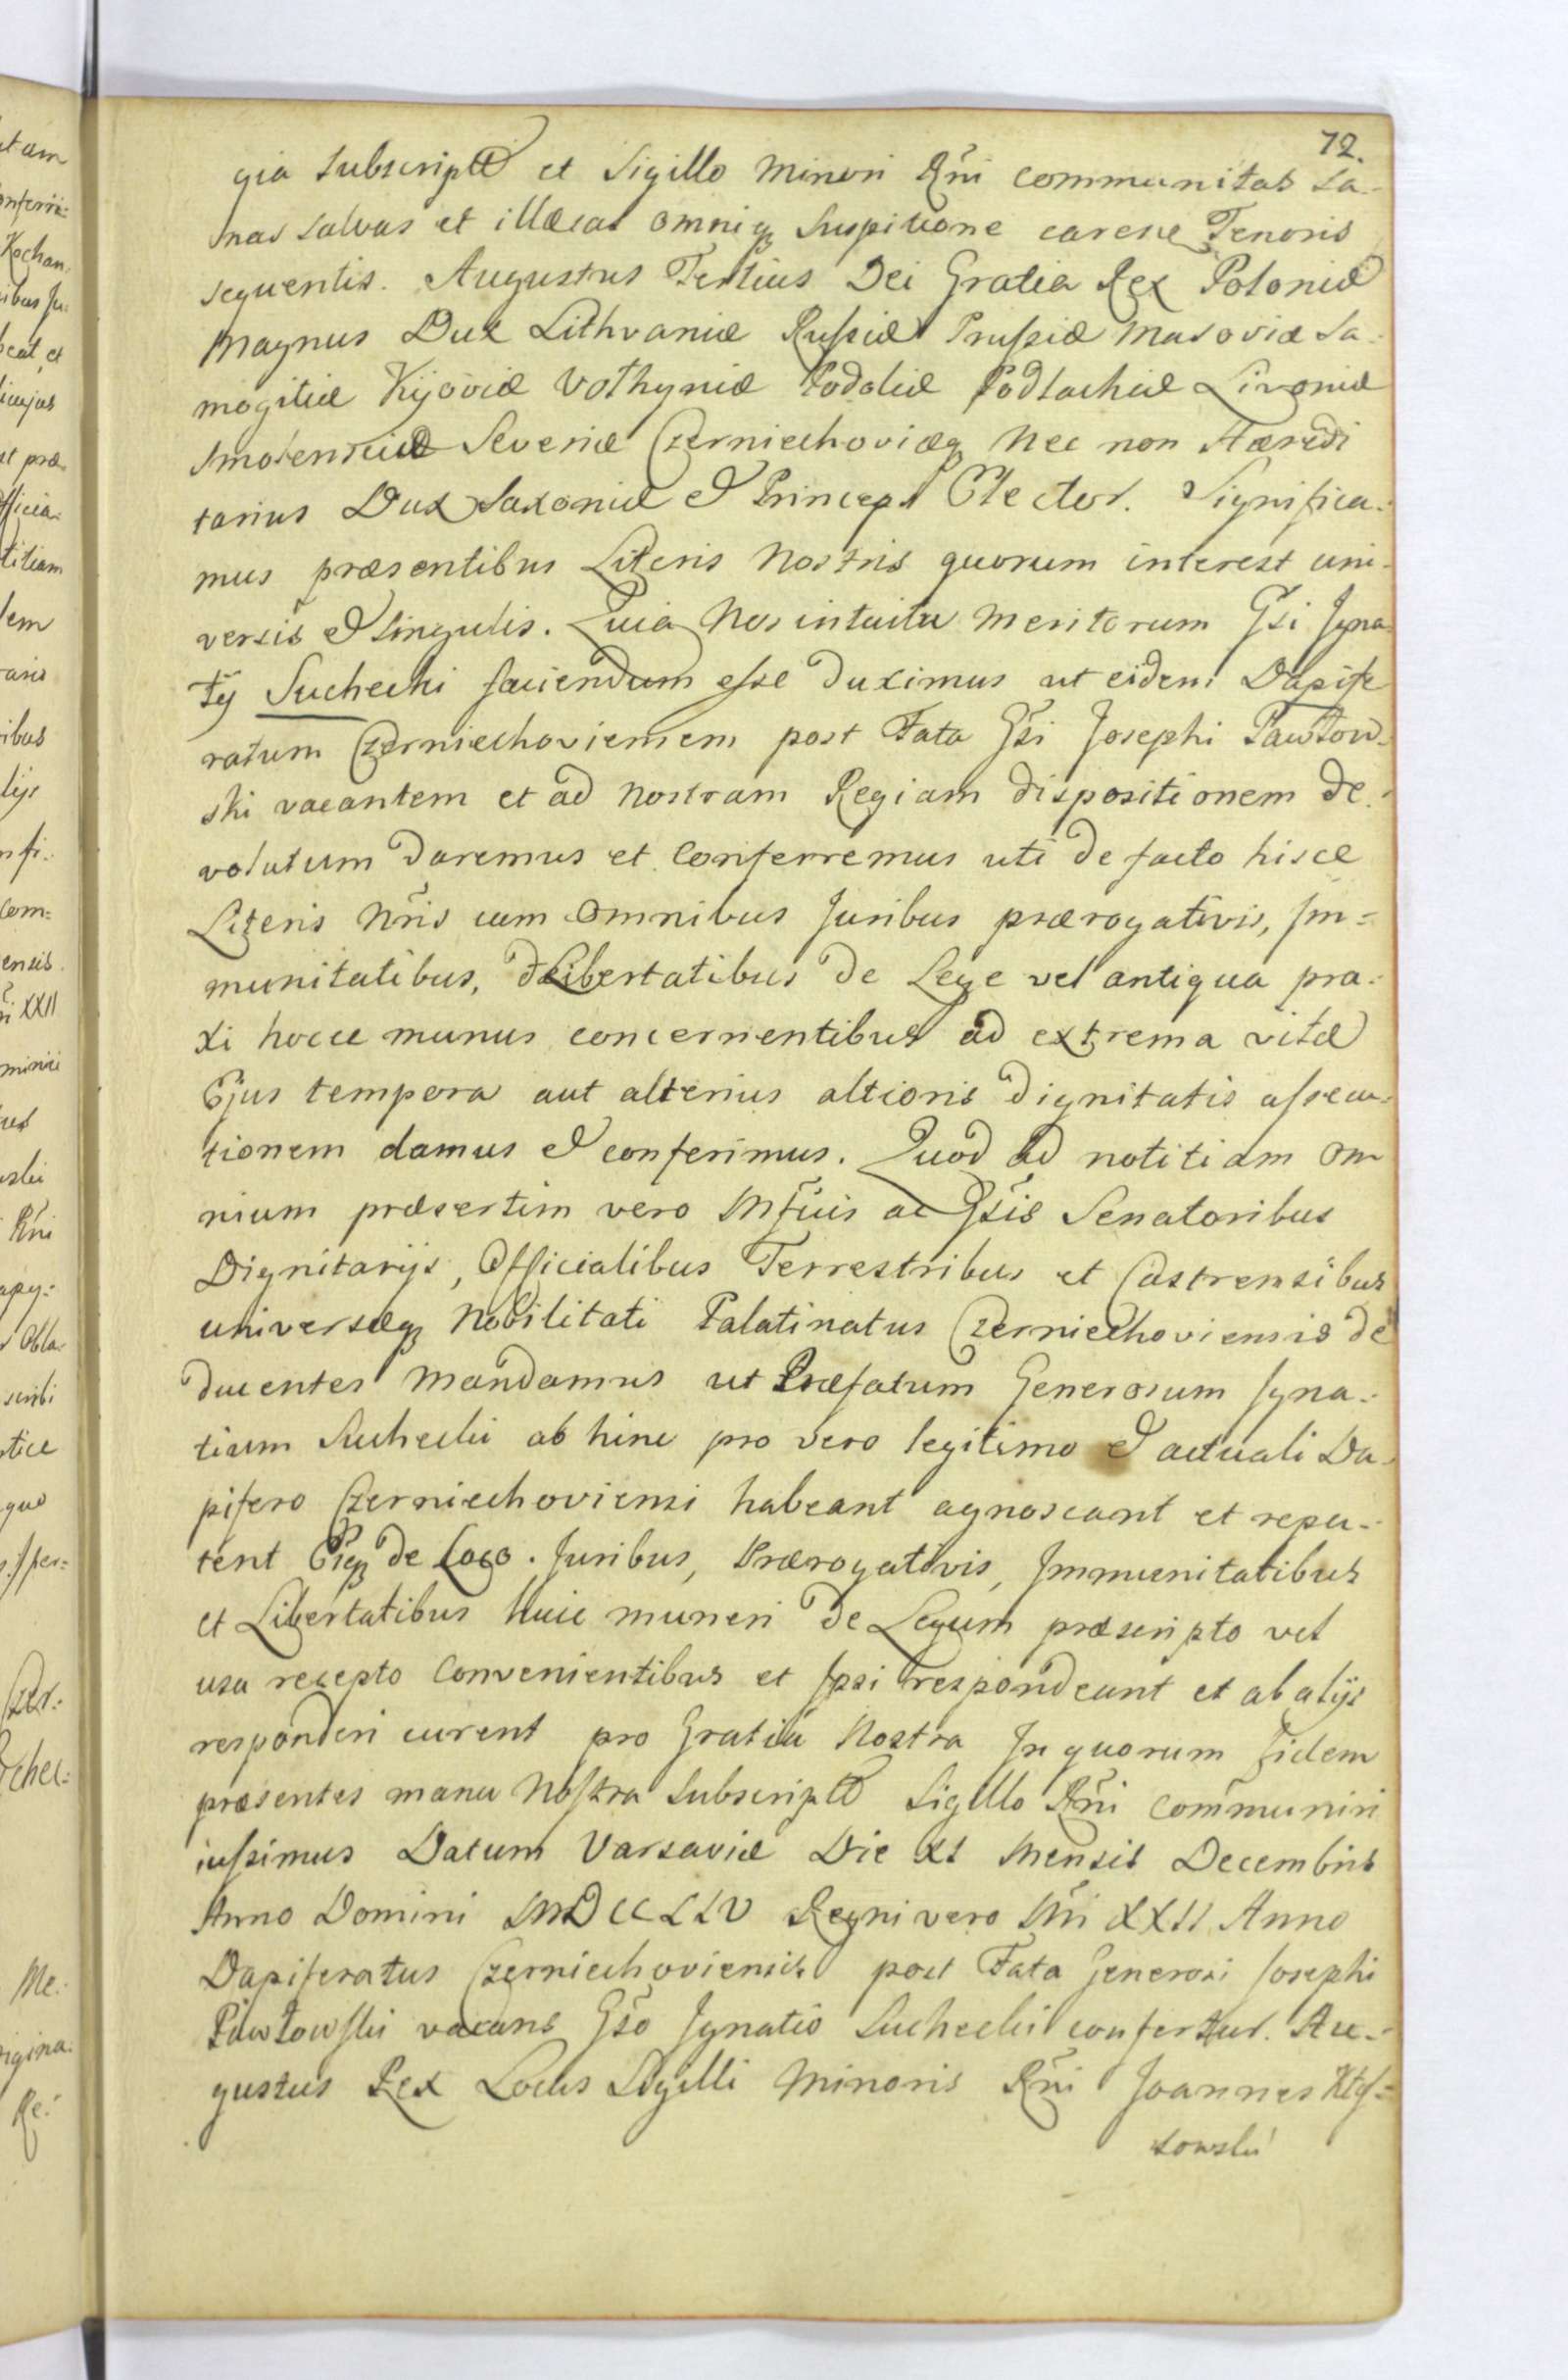 72.
gia subscriptæ et Sigillo Minori Rñi communitas sa-
nas salvas et illæsas omniq suspitione carene Tenoris
sequentis. Augustus Tertius Dei Gratia Rex Poloniæ
Magnus Dux Lithvaniæ Rußiæ Prußiæ Masoviæ Sa-
mogitiæ Kijoviæ Volhyniæ Podoliæ Podlachiæ Livoniæ
Smolensciæ Severiæ Czerniechoviæq Nec non Hæredi
tarius Dux Saxoniæ & Princeps Elector. Significa-
mus præsentibus Literis Nostris quorum interest uni-
versis & singulis. Quia Nos intuitu Meritorum Gsi Igna
tij Suchecki faciendum esse duximus ut eidem Dapife
ratum Czerniechoviensem post Fata Gsi Josephi Pawłow-
ski vacantem et ad Nostram Regiam dispositionem de-
volutum daremus et Conferremus uti de facto hisce
Literis Nris cum Omnibus Juribus prærogativis, Im=
munitatibus, & Libertatibus de Lege vel antiqua pra-
xi hocce munus concernentibus ad extrema vitæ
Ejus tempora aut alterius altioris dignitatis assecu-
tionem damus & conferimus. Quod ad notitiam Om
nium præsertim vero Mfcis ac Gsis Senatoribus
Dignitarijs, Officialibus Terrestribus et Castrensibus
universæq Nobilitati Palatinatus Czerniechoviensis de
ducentes Mandamus ut Præfatum Generosum Igna-
tium Suchecki ab hinc pro vero legitimo & actuali Da-
pifero Czerniechoviensi habeant agnoscant et repu-
tent Eiq de Loco. Juribus, Prærogativis, Immunitatibus
et Libertatibus Huic muneri de Legum præscripto vel
usu recepto Convenientibus et Ipsi respondeant et ab alijs
responderi curent pro Gratia Nostra In quorum Fidem
præsentes manu Nostra subscriptæ Sigillo Rñi Communiri
iussimus Datum Varsaviæ Die XI Mensis Decembris
Anno Domini MDCCLIV Regni vero Nri XXII Anno
Dapiferatus Czerniechoviensis post Fata Generosi Josephi
Pawłowski vacans Gso Ignatio Suchecki confertur. Au-
gustus Rex Locus Sigilli Minoris Rñi Joannes